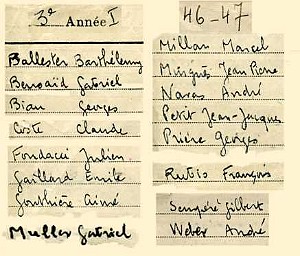 3e Année I
Ballester Barthélemy
Benoaïd Gabriel
Biau Georges
Coste Claude
Fondacci Julien
Gaillard Emile
Gonthière Aimé
Muller Gabriel
46-47
Millan Marcel
Minguès Jean Pierre
Navas André
Petit Jean-Jacques
Prière Georges
Rubis François
Sempéré Gilbert
Weber André